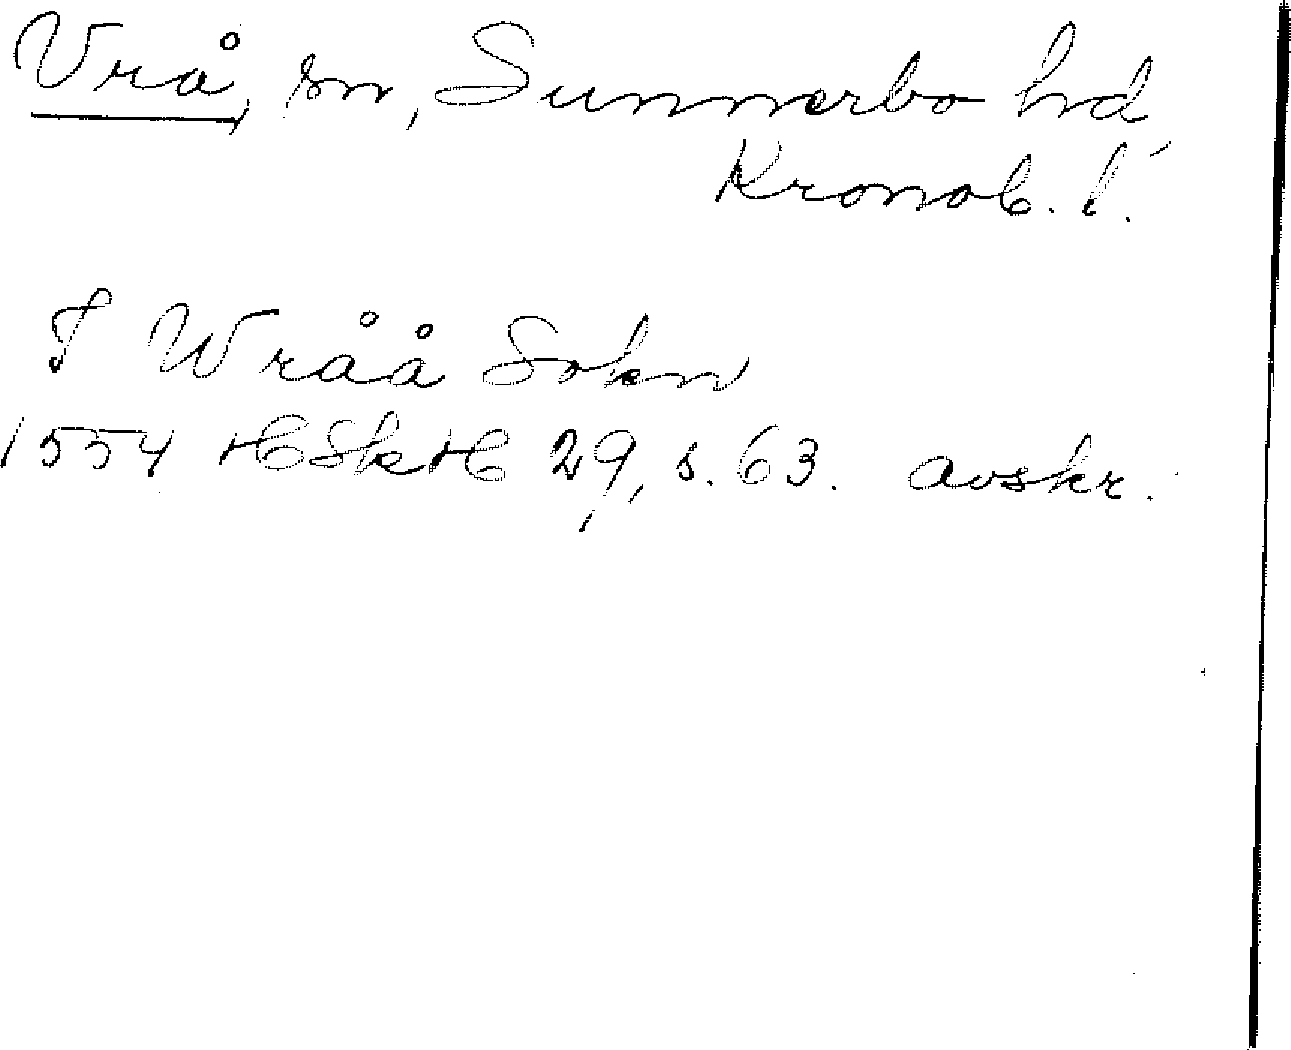 Vrå, sn, Sunnerbo hd
Kronob. l.
I Wråå Sokn
1554 HSkH 29, s. 63. avskr.